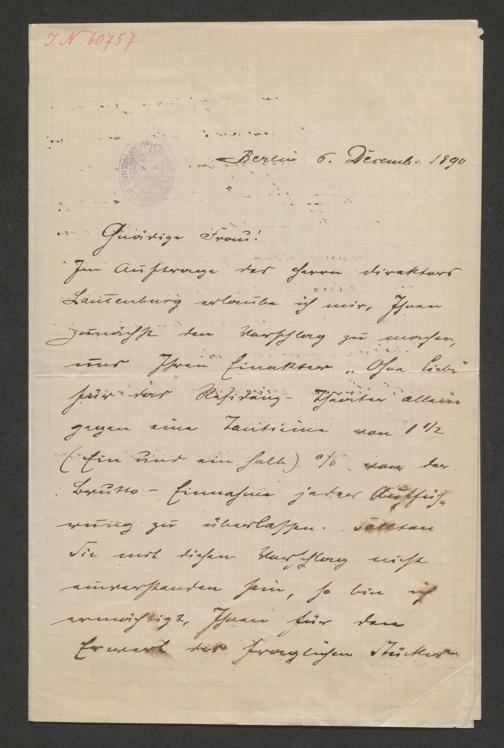 I.N. 60757
Berlin 6. Decemb. 1890
Gnädige Frau!
Im Auftrage des Herrn Direktors
Lautenburg erlaube ich mir, Ihnen
zunächst den Vorschlag zu machen,
uns Ihren Einakter „Ohne Liebe“
für das Residenz-Theater allein
gegen eine Tantieme von 1 1/2
(Ein und ein halb) % von der
Brutto-Einnahme jeder Auffüh-
rung zu überlassen. Sollten
Sie mit diesem Vorschlag nicht
einverstanden sein, so bin ich
ermächtigt, Ihnen für den
Erwerb des fraglichen Stückes